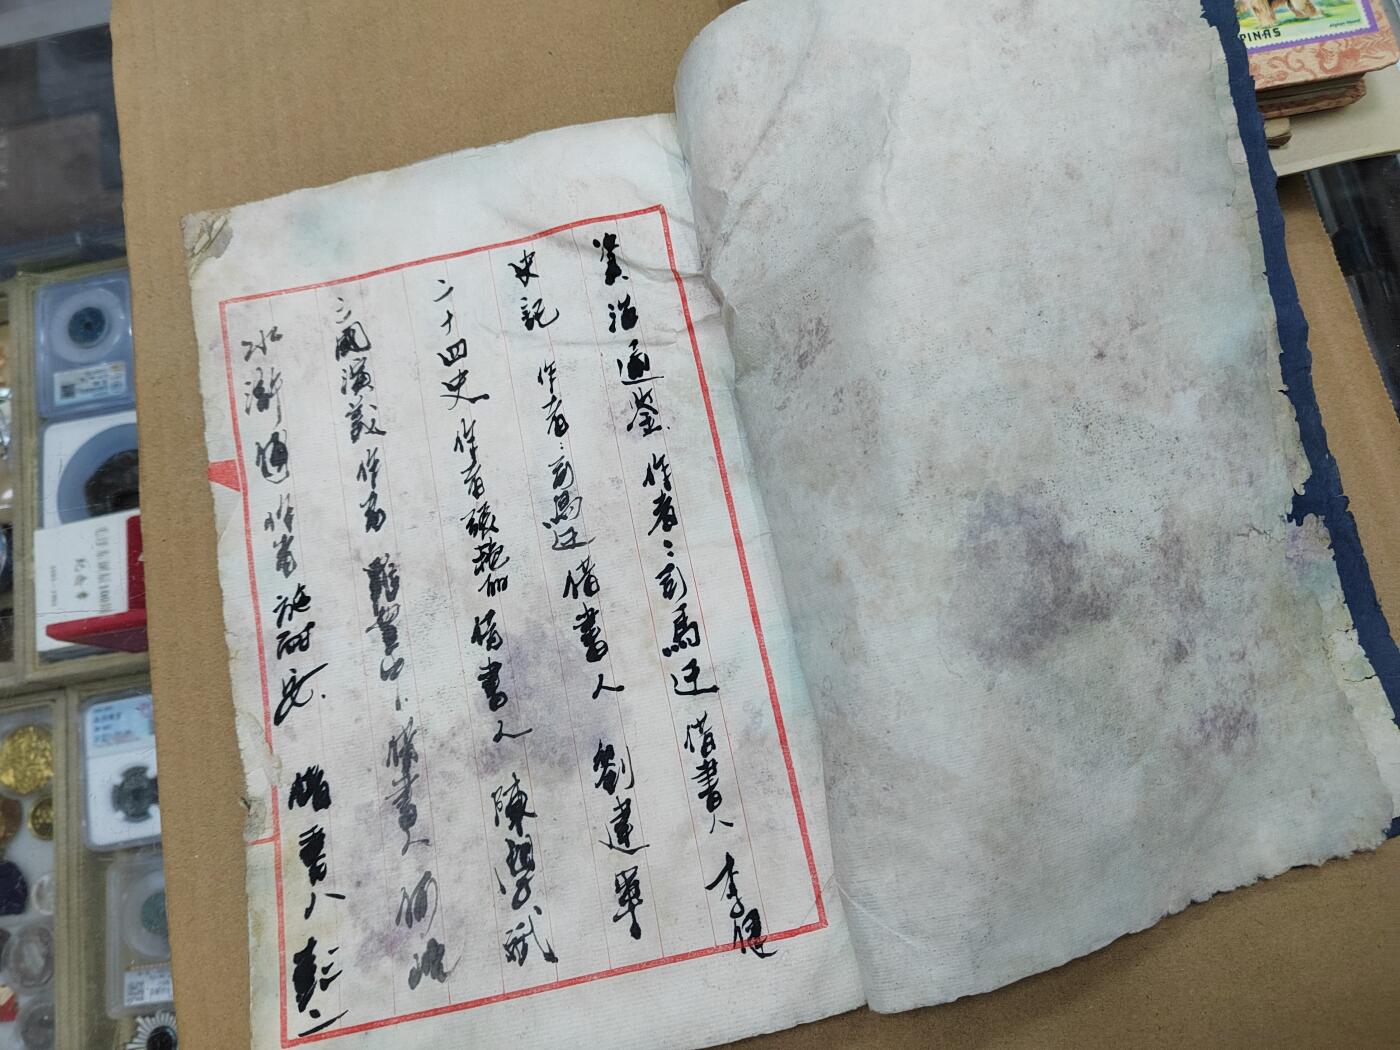 資治通鉴 作者:司馬迁 借書人 李健
史記 作者:司馬迁 借書人 劉建軍
二十四史 作者張 借書人 陳學斌
三國演義 作者 羅貫中 借書人
水滸 作者 施耐安 借書人
PINAS